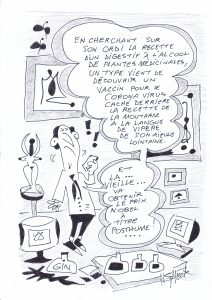 EN CHERCHANT SUR
SON ORDI LA RECETTE
D'UN DIGESTIF À L'ALCOOL
DE PLANTES MÉDICINALES,
UN TYPE VIENT DE
DÉCOUVRIR UN
VACCIN POUR LE
CORONA VIRUS
CACHÉ DERRIÈRE
LA RECETTE DE
LA MOUTARDE
À LA LANGUE
DE VIPÈRE
DE SON AÏEULE
LOINTAINE.
ET
LA...
VIEILLE...
VA
OBTENIR
LE PRIX
NOBEL
À
TITRE
POSTHUME...
GIN